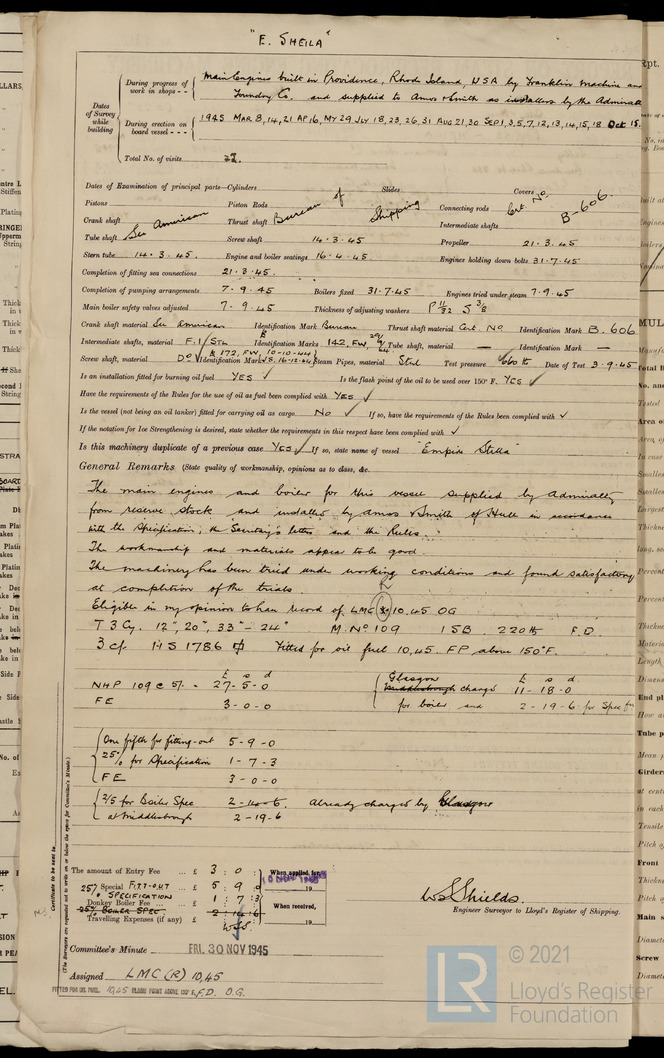 "E. SHEILA"
During progress of work in shops - - Main Engines built in Providence, Rhode Island, USA by Franklin Machine and
Foundry Co. and supplied to Amos & Smith as installers by the Admiralt
Dates of Survey while building
During erection on board vessel - - - 1945 MAR 8, 14, 21 AP 16, MY 29 JLY 18, 23, 26, 31 AUG 21, 30 SEP 1, 3, 5, 7, 12, 13, 14, 15, 18 Oct 15.
Total No. of visits
Dates of Examination of principal parts—Cylinders Slides Covers
Pistons Piston Rods Connecting rods
Crank shaft Thrust shaft Intermediate shafts
See American Bureau of Shipping Cert. No. B-606
Tube shaft Screw shaft 14.3.45 Propeller 21.3.45
Stern tube 14.3.45. Engine and boiler seatings 16.4.45 Engines holding down bolts 31.7.45
Completion of fitting sea connections 21.3.45.
Completion of pumping arrangements 7.9.45 Boilers fixed 31.7.45 Engines tried under steam 7.9.45
Main boiler safety valves adjusted 7.9.45 Thickness of adjusting washers P 11/32 S 3/8
Crank shaft material See American Identification Mark Bureau Thrust shaft material Cert. No Identification Mark B.606
Intermediate shafts, material F.I/Stl Identification Marks 142, FW, Tube shaft, material — Identification Mark —
Screw shaft, material Do Identification Mark 172, FW, 10-10-44 Steam Pipes, material Steel Test pressure 660 lb Date of Test 3.9.45
Is an installation fitted for burning oil fuel YES ✓ Is the flash point of the oil to be used over 150° F. YES ✓
Have the requirements of the Rules for the use of oil as fuel been complied with YES ✓
Is the vessel (not being an oil tanker) fitted for carrying oil as cargo No ✓ If so, have the requirements of the Rules been complied with ✓
If the notation for Ice Strengthening is desired, state whether the requirements in this respect have been complied with ✓
Is this machinery duplicate of a previous case YES ✓ If so, state name of vessel "Empire Stella"
General Remarks (State quality of workmanship, opinions as to class, &c.
The main engines and boiler for this vessel supplied by Admiralty
from reserve stock and installed by Amos & Smith of Hull in accordance
with the Specification, the Secretary's letters and the Rules.
The workmanship and materials appear to be good.
The machinery has been tried under working conditions and found satisfactory
at completion of the trials.
Eligible in my opinion to have record of LMC 10.45 OG
T 3 Cy. 12", 20", 33" - 24" M.No 109 1 SB. 220 lb F.D.
3 cf. HS 1786 Fitted for oil fuel 10,45. FP above 150°F.
£ s d
NHP 109 @ 5/- = 27-5-0
FE 3-0-0
Glasgow £ s d
Middlesbrough charge 11-18-0
for boiler and 2-19-6 for Spec
One fifth for fitting-out 5-9-0
25% for Specification 1-7-3
FE 3-0-0
2/5 for Boiler Spec
at Middlesbrough 2-19-6
Already charged by Glasgow
The amount of Entry Fee ... £ 3 : 0 :
25% Special FITT-OUT £ 5 : 9 : 0
% SPECIFICATION
Donkey Boiler Fee ... £ 1 : 7 : 3
25% BOILER SPEC
Travelling Expenses (if any) £
When applied for,
19
When received,
19
W S Shields.
Engineer Surveyor to Lloyd's Register of Shipping.
Committee's Minute FRI. 30 NOV 1945
Assigned LMC (R) 10,45
FITTED FOR OIL FUEL 10,45 FLASH POINT ABOVE 150° F. F.D. O.G.
Certificate to be sent to
(The Surveyors are requested not to write on or below the space for Committee's Minute.)
© 2021
LR
Lloyd's Register
Foundation